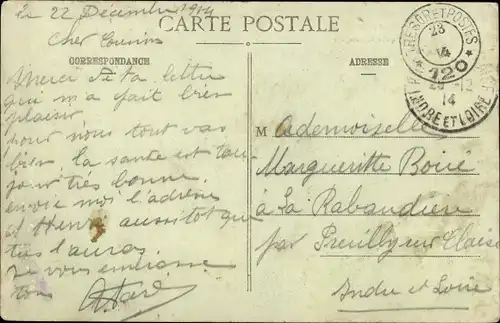 le 22 Décembre 1914
Cher Cousins
CARTE POSTALE
CORRESPONDANCE
Merci de ta lettre
qui m'a fait bien
plaisir
pour nous tout vas
bien la santé est tou-
jour très bonne.
envoie moi l'adresse
d Henri aussitot que
tu l'auras.
Je vous embrasse
tous
ADRESSE
Mademoiselle
Margueritte Boué
à La Rabaudien
par Preuilly sur Claise
Indre et Loire
TRESOR ET POSTES
23
14
* 120 *
12
14
INDRE ET LOIRE